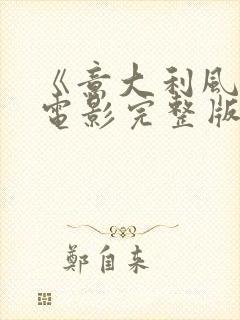 《意大利風
電影完整版
鄭自来